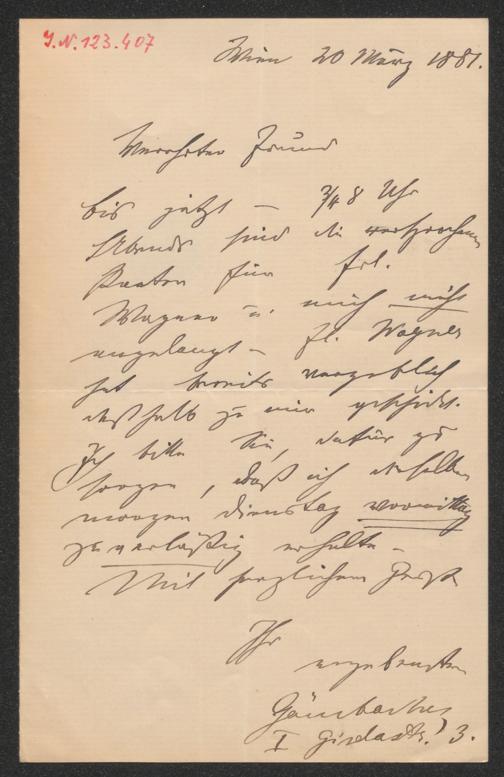 I.N. 123.407
Wien 20 März 1881.
Verehrter Freund
bis jetzt – ¾ 8 Uhr
Abends sind die versprochenen
Karten für Frl.
Wagner u. mich nicht
angelangt – Fr. Wagner
hat bereits vergeblich
deßhalb zu mir geschickt.
Ich bitte Sie, dafür zu
sorgen, daß ich dieselben
morgen Dienstag vormittag
zuverläßig erhalte –
Mit herzlichem Gruß
Ihr
ergebenster
I Giselastr. 3.